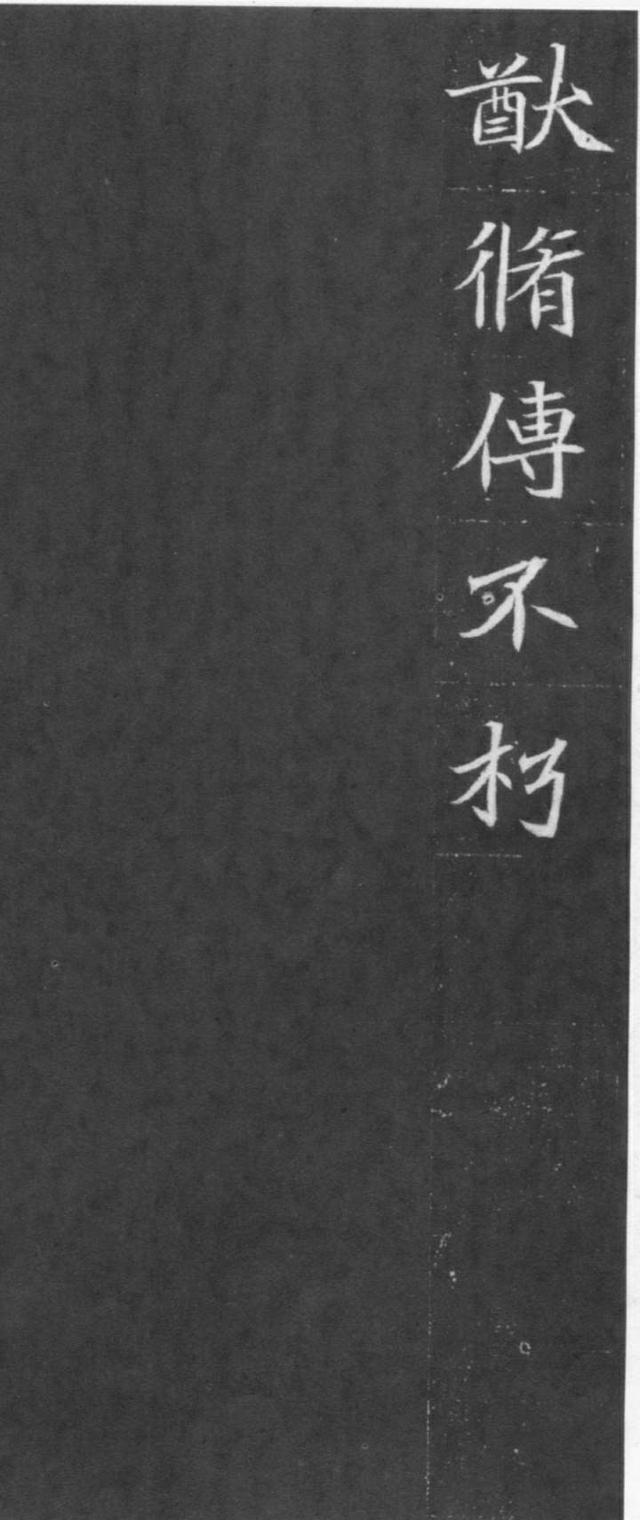 猷脩傳不朽